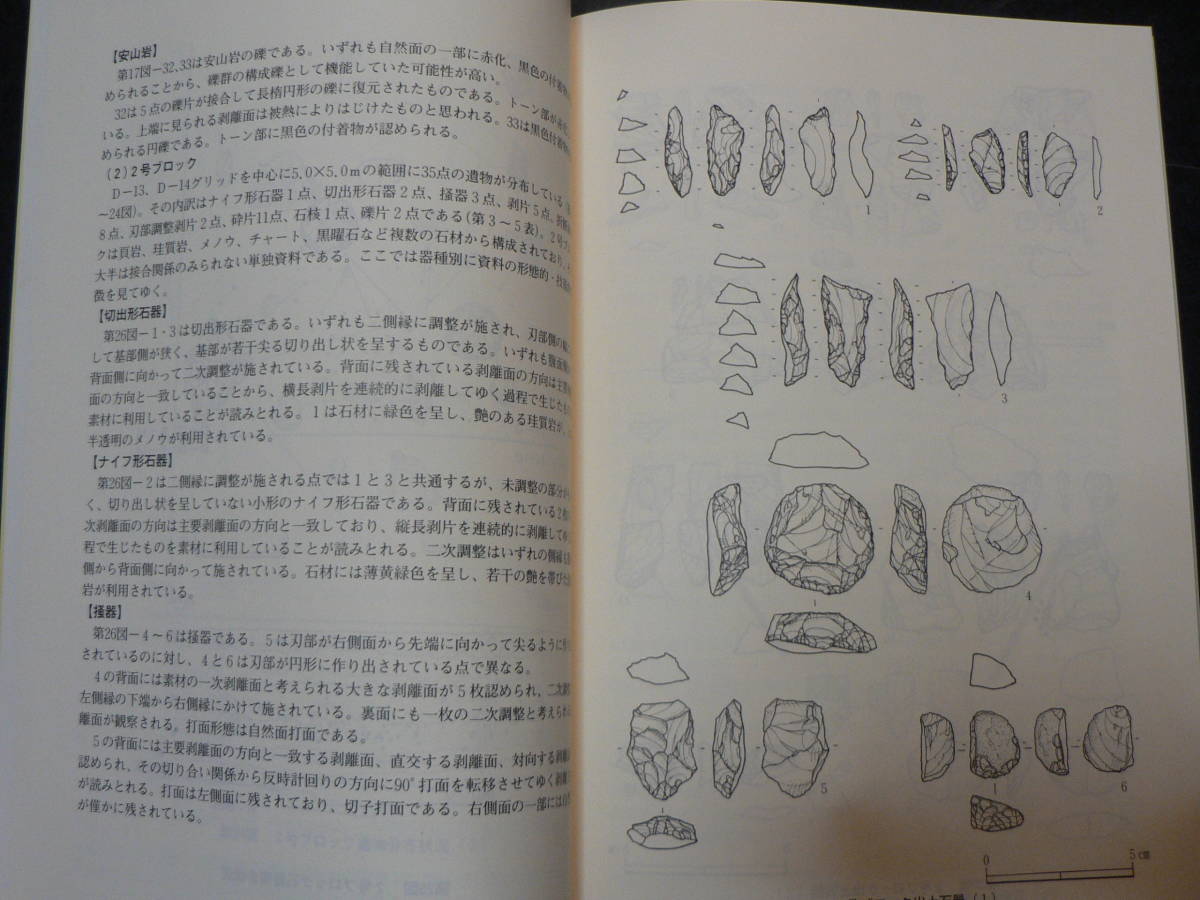 【安山岩】
第17図－32、33は安山岩の礫である。いずれも自然面の一部に赤化、黒色の付着物
められることから、礫群の構成礫として機能していた可能性が高い。
32は5点の礫片が接合して長楕円形の礫に復元されたものである。トーン部が赤化
いる。上端に見られる剥離面は被熱によりはじけたものと思われる。33は黒色付着物
められる円礫である。トーン部に黒色の付着物が認められる。
(2)2号ブロック
D－13、D－14グリッドを中心に5.0×5.0mの範囲に35点の遺物が分布している
～24図)。その内訳はナイフ形石器1点、切出形石器2点、掻器3点、剥片5点、
8点、刃部調整剥片2点、砕片11点、石核1点、礫片2点である(第3～5表)。2号ブ
クは頁岩、珪質岩、メノウ、チャート、黒曜石など複数の石材から構成されており、
大半は接合関係のみられない単独資料である。ここでは器種別に資料の形態的・技
徴を見てゆく。
【切出形石器】
第26図－1・3は切出形石器である。いずれも二側縁に調整が施され、刃部側の
して基部側が狭く、基部が若干尖る切り出し状を呈するものである。いずれも腹面
背面側に向かって二次調整が施されている。背面に残されている剥離面の方向は主要
面の方向と一致していることから、横長剥片を連続的に剥離してゆく過程で生じたも
素材に利用していることが読みとれる。1は石材に緑色を呈し、艶のある珪質岩が、
半透明のメノウが利用されている。
【ナイフ形石器】
第26図－2は二側縁に調整が施される点では1と3と共通するが、未調整の部分が
く、切り出し状を呈していない小形のナイフ形石器である。背面に残されている2
次剥離面の方向は主要剥離面の方向と一致しており、縦長剥片を連続的に剥離してゆ
程で生じたものを素材に利用していることが読みとれる。二次調整はいずれの側縁も
側から背面側に向かって施されている。石材には薄黄緑色を呈し、若干の艶を帯びた
岩が利用されている。
【掻器】
第26図－4～6は掻器である。5は刃部が右側面から先端に向かって尖るように
されているのに対し、4と6は刃部が円形に作り出されている点で異なる。
4の背面には素材の一次剥離面と考えられる大きな剥離面が5枚認められ、二次調
左側縁の下端から右側縁にかけて施されている。裏面にも一枚の二次調整と考えられ
離面が観察される。打面形態は自然面打面である。
5の背面には主要剥離面の方向と一致する剥離面、直交する剥離面、対向する剥離
認められ、その切り合い関係から反時計回りの方向に90°打面を転移させてゆく剥離
が読みとれる。打面は左側面に残されており、切子打面である。右側面の一部には自
が僅かに残されている。
1
2
3
4
5
6
0
5㎝